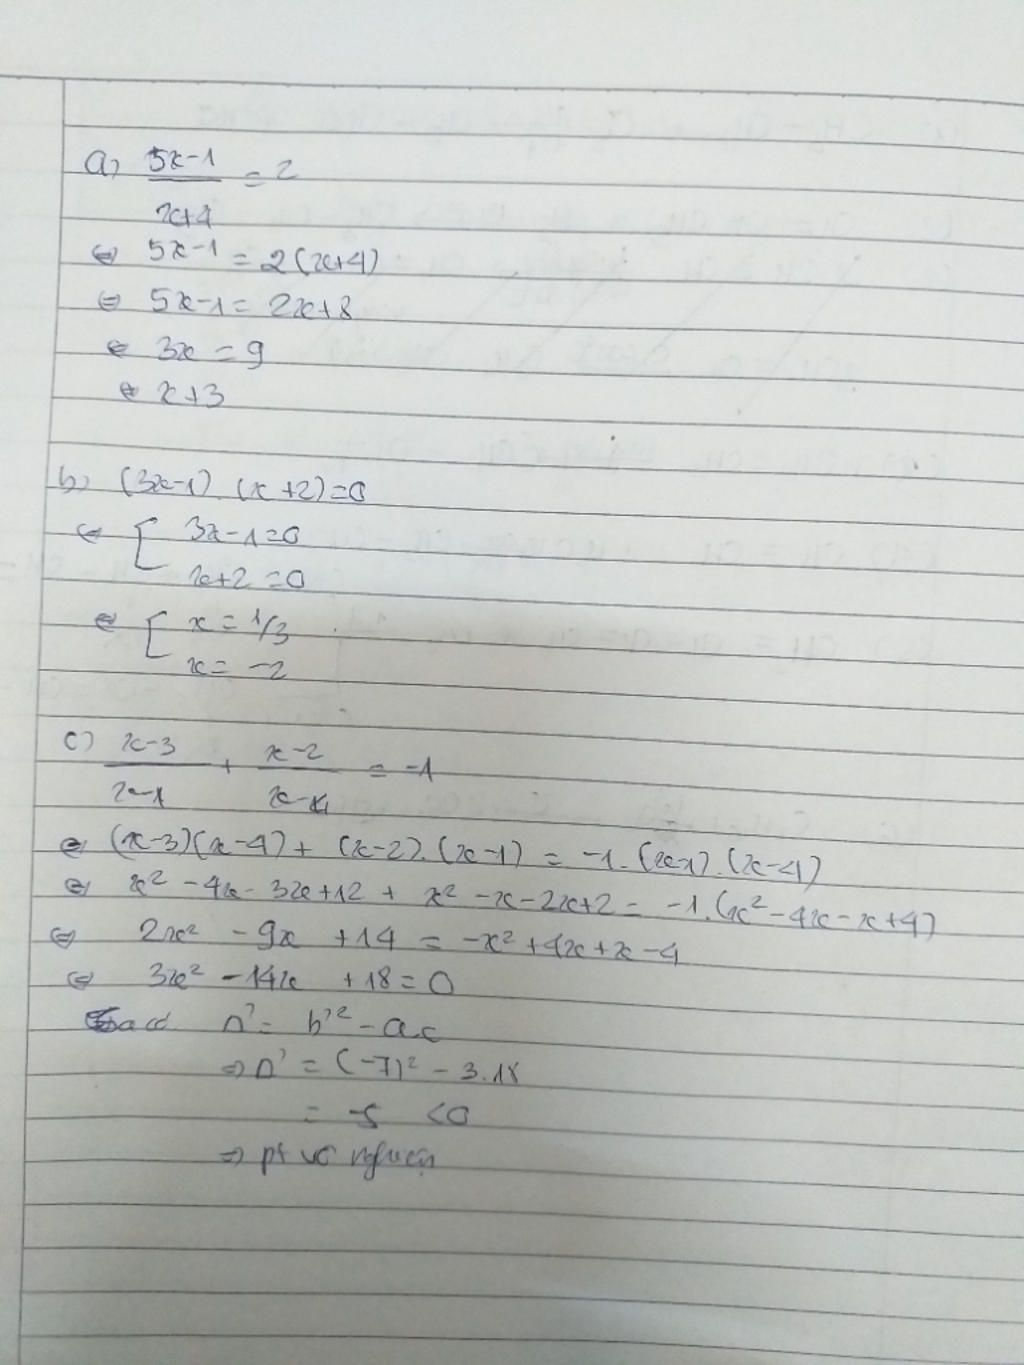 a) 5x-1 / x+4 = 2
⇔ 5x-1 = 2(x+4)
⇔ 5x-1 = 2x+8
⇔ 3x = 9
⇔ x+3
b) (3x-1).(x+2)=0
⇔ [ 3x-1=0
x+2=0
⇔ [ x = 1/3
x = -2
c) x-3 / x-1 + x-2 / x-4 = -1
⇔ (x-3)(x-4) + (x-2).(x-1) = -1.(x-1).(x-4)
⇔ x² - 4x - 3x+12 + x² - x - 2x+2 = -1.(x² - 4x - x+4)
⇔ 2x² - 9x +14 = -x² + 4x + x - 4
⇔ 3x² - 14x +18 = 0
Δ' = b'² - a.c
⇒ Δ' = (-7)² - 3.18
= -5 <0
⇒ pt vô nghiệm